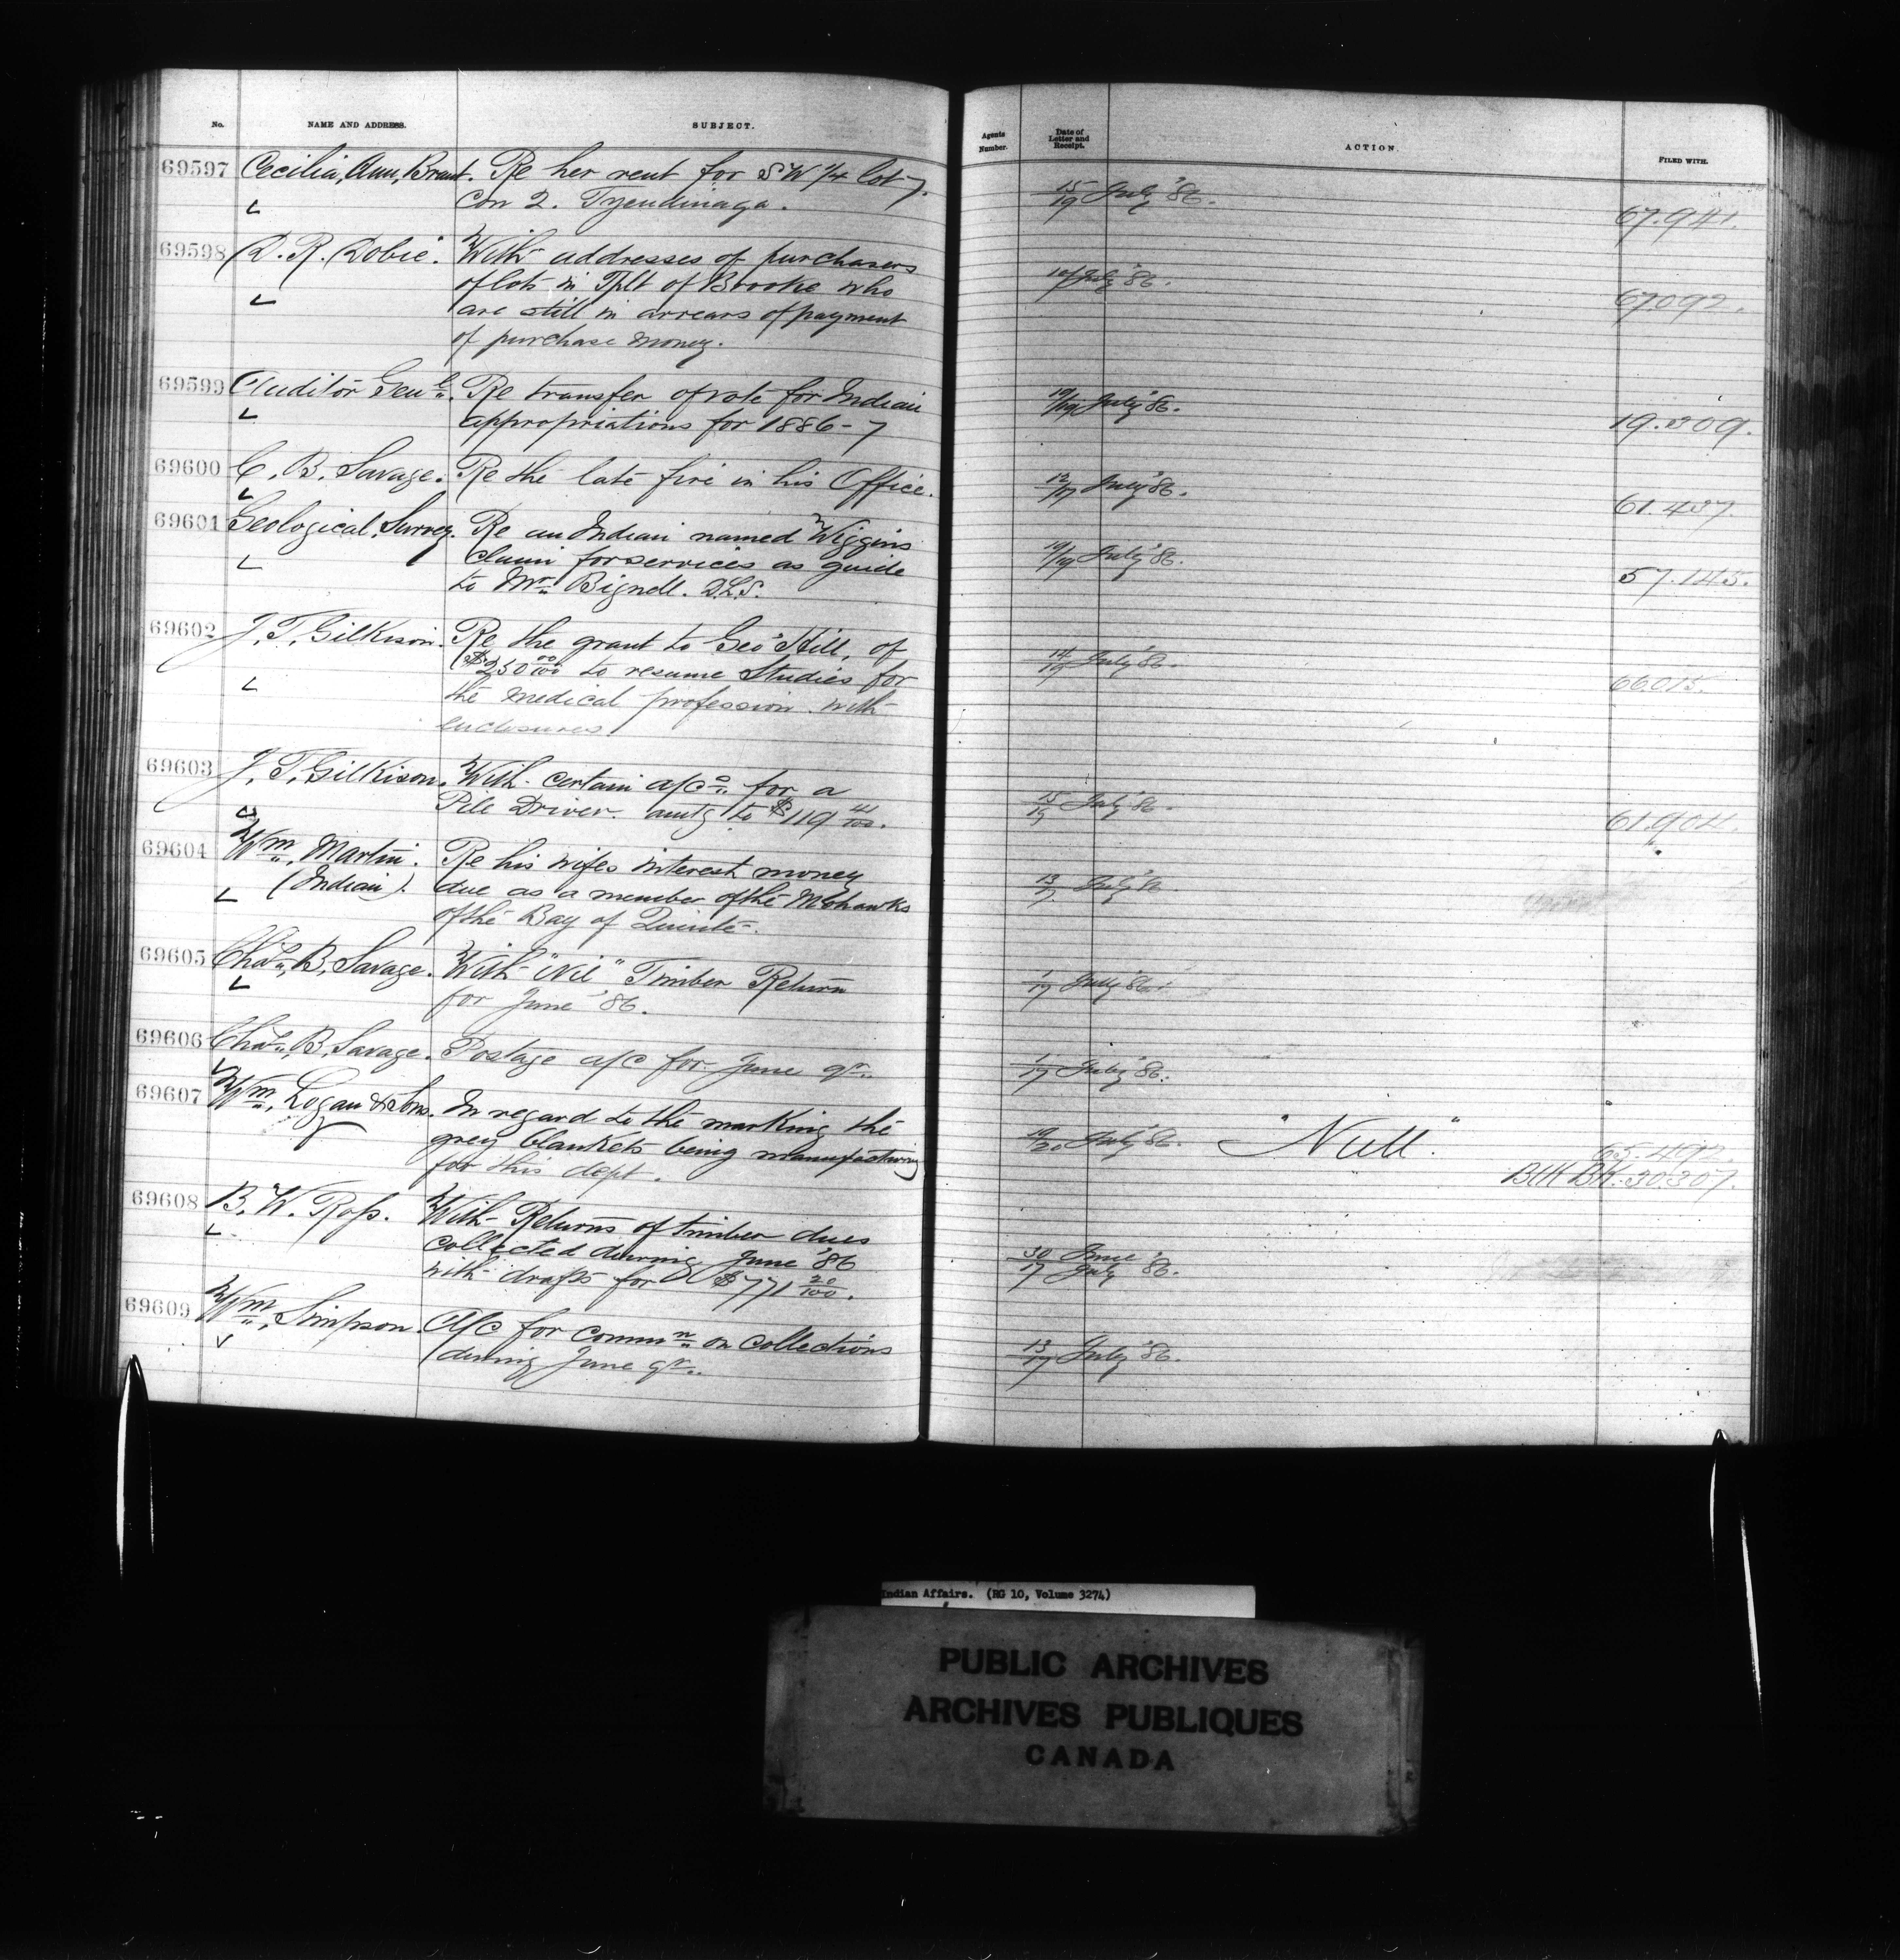 No.
NAME AND ADDRESS.
SUBJECT.
69597 Cecilia, Ann, Brant. Re her rent for S W 1/4 lot 7.
Con 2. Tyendinaga.
69598 D. R. Dobie. With addresses of purchasers
of lots in Tplt of Brooke who
are still in arrears of payment
of purchase money.
69599 Auditor Genl. Re transfer of vote for Indian
appropriations for 1886-7
69600 C. B. Savage. Re the late fire in his Office.
69601 Geological Survey. Re an Indian named Wiggins
claim for services as guide
to Mr. Bignell. D.L.S.
69602 J. T. Gilkison. Re the grant to Geo Hill, of
$250 00/100 to resume Studies for
the medical profession. with
enclosures.
69603 J. T. Gilkison. With certain a/cs for a
Pile Driver. amtg to $119 41/100.
69604 Wm. Martin. Re his wifes interest money
(Indian). due as a member of the Mohawks
of the Bay of Quinté.
69605 Chas. B. Savage. With "Nil" Timber Return
for June '86.
69606 Chas. B. Savage. Postage a/c for June qr.
69607 Wm. Logan & Sons. In regard to the marking the
grey blankets being manufacturing
for this dept.
69608 B. W. Ross. With Returns of timber dues
collected during June '86
with drafts for $771 20/100.
69609 Wm. Simpson. A/c for commn on collections
during June qr.
Agents
Number.
Date of
Letter and
Receipt.
ACTION.
FILED WITH.
15/19 July '86.
67.941.
July '86.
67092.
19/19 July '86.
19.309.
12/17 July '86.
61.437.
19/19 July '86.
57.145.
July '86.
66015.
15/19 July '86.
61.904.
13/17 July '86
1/17 July '86.
1/17 July '86.
19/20 July '86. "Null".
65.492.
Blk Bk. 30307.
30 June
17 July '86.
13/17 July '86.
Indian Affairs. (RG 10, Volume 3274)
PUBLIC ARCHIVES
ARCHIVES PUBLIQUES
CANADA